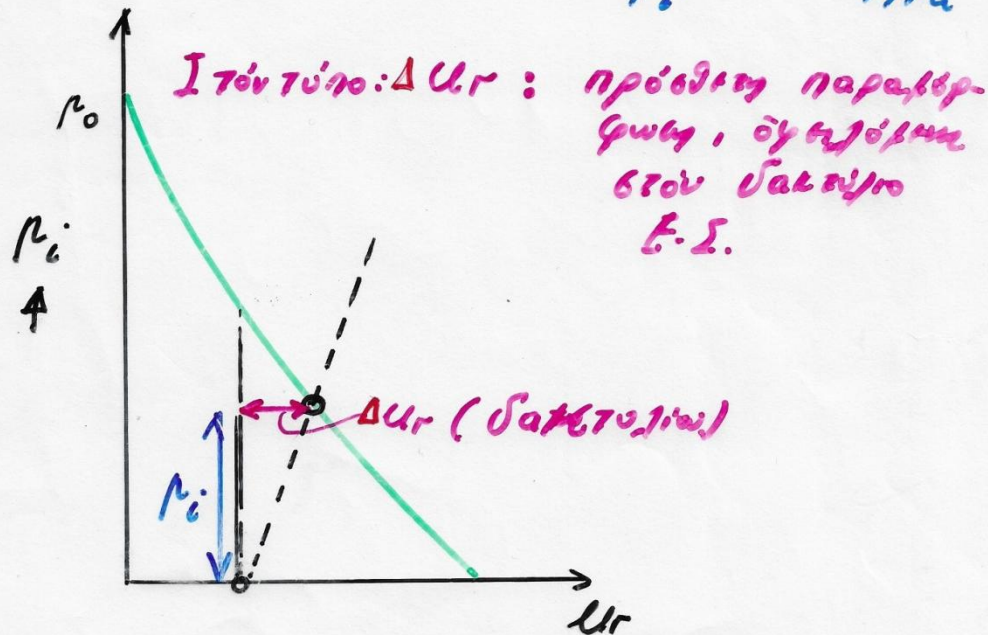 Στόν τύπο: Δ Ur : πρόσθετη παραμόρ-
φωση, ὀφειλόμενη
στόν δακτύλιο
Ε.Σ.
Po
Pi
ΔUr (δακτυλίου)
Pi
Ur